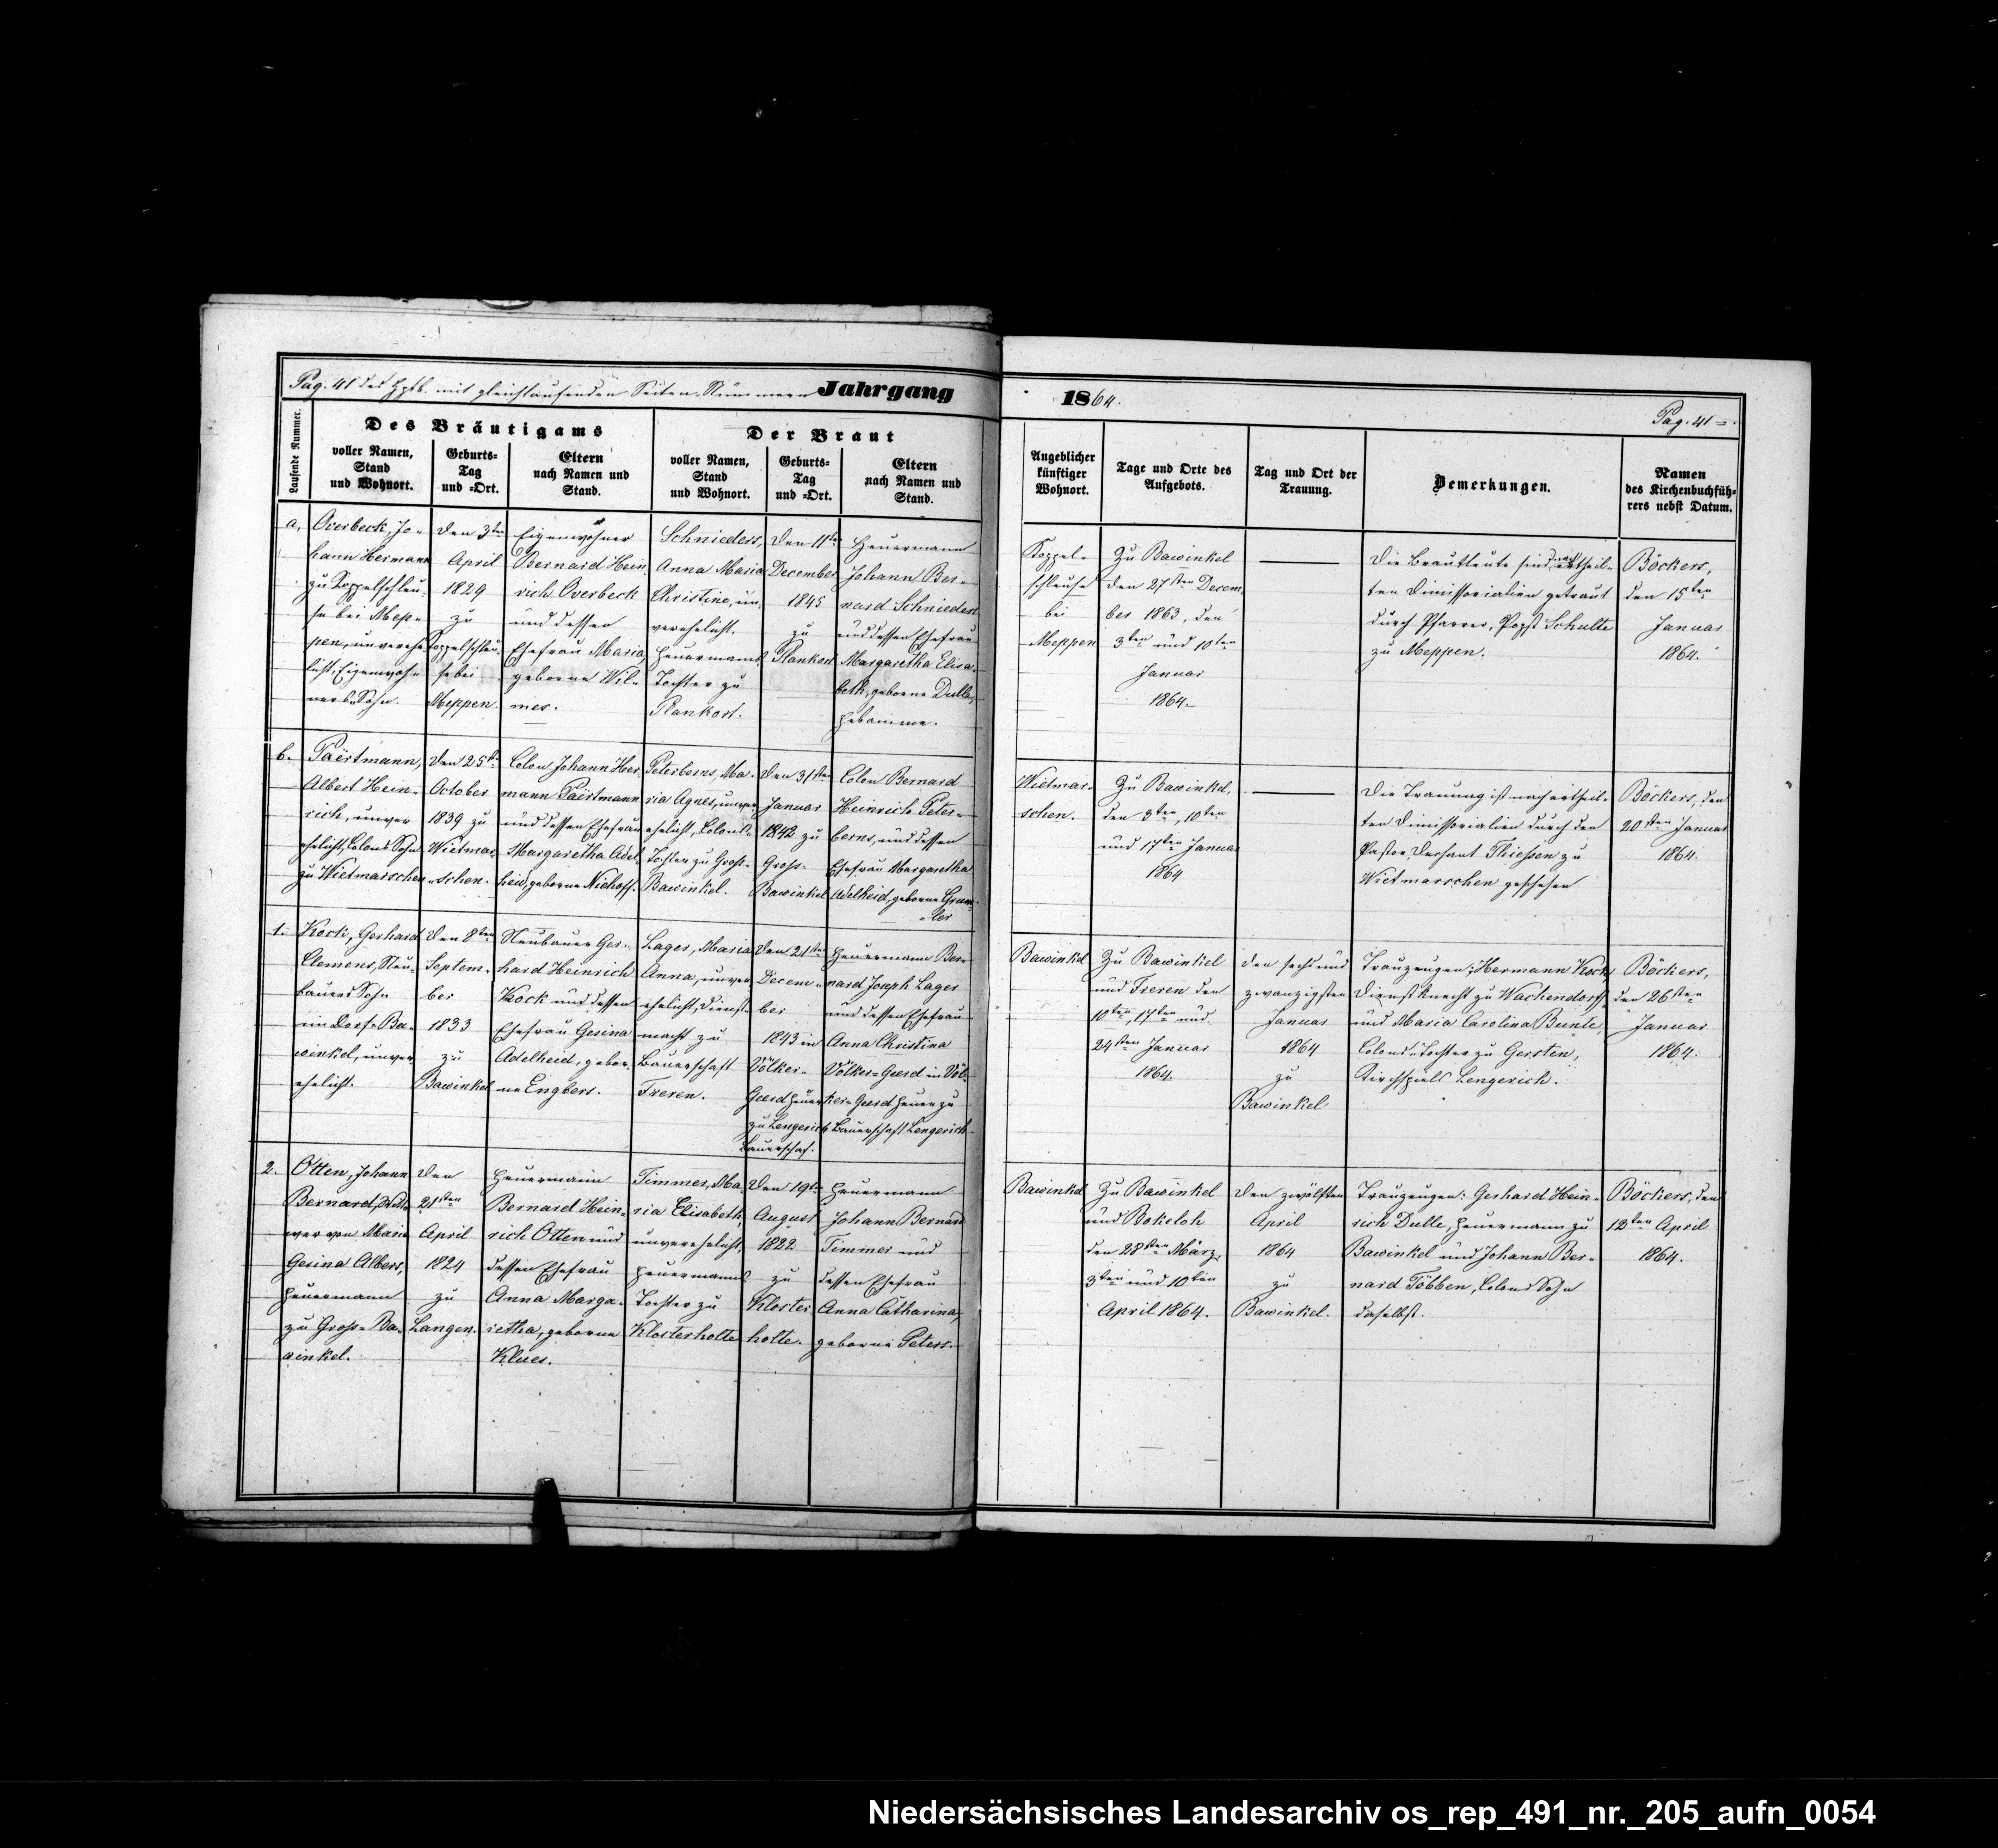 Pag. 41 des Hptb. mit gleichlaufenden Seiten-Nummern Jahrgang
1864.
Pag. 41
Laufende Nummer.
Des Bräutigams
voller Namen,
Stand
und Wohnort.
Geburts-
Tag
und =Ort.
Eltern
nach Namen und
Stand.
Der Braut
voller Namen,
Stand
und Wohnort.
Geburts-
Tag
und =Ort.
Eltern
nach Namen und
Stand.
Angeblicher
künftiger
Wohnort.
Tage und Orte des
Aufgebots.
Tag und Ort der
Trauung.
Bemerkungen.
Namen
des Kirchenbuchfüh-
rers nebst Datum.
a.
Overbeck, Jo-
hann Hermann
zu Koppelschleu-
se bei Mep-
pen, unverehe-
licht, Eigenwoh-
ners Sohn.
Den 3ten
April
1829
zu
Koppelschleu-
se bei
Meppen.
Eigenwohner
Bernard Hein-
rich Overbeck
und dessen
Ehefrau Maria
geborne Wil-
mes.
Schnieders,
Anna Maria
Christine, un-
verehelicht,
Heuermanns
Tochter zu
Plankort.
Den 11ten
December
1845
zu
Plankort
Heuermann
Johann Ber-
nard Schnieders
und dessen Ehefrau
Margaretha Elisa-
beth, geborne Dulle,
Hebamme.
Koppel-
schleuse
bei
Meppen
Zu Bawinkel
den 27sten Decem-
ber 1863, den
3ten und 10ten
Januar
1864.
Die Brautleute sind nach ertheil-
ten Dimissorialien getraut
durch Pfarrer, Propst Schulte
zu Meppen.
Böckers,
den 15ten
Januar
1864.
b.
Paërtmann,
Albert Hein-
rich, unver-
ehelicht, Colons Sohn
zu Wietmarschen
Den 25ten
October
1839 zu
Wietmar-
schen.
Colon Johann Her-
mann Paërtmann
und dessen Ehefrau
Margaretha Adel-
heid, geborne Niehoff.
Peterberns, Ma-
ria Agnes, unver-
ehelicht, Colons-
Tochter zu Gross-
Bawinkel.
Den 31sten
Januar
1842 zu
Gross-
Bawinkel
Colon Bernard
Heinrich Peter-
berns, und dessen
Ehefrau Margaretha
Adelheid, geborne
Wietmar-
schen.
Zu Bawinkel,
den 3ten, 10ten
und 17ten Januar
1864
Die Trauung ist nach ertheil-
ten Dimissorialien durch den
Pastor Thiessen zu
Wietmarschen geschehen
Böckers, den
20sten Januar
1864.
1.
Kock, Gerhard
Clemens, Neu-
bauers Sohn
im Dorfe Ba-
winkel, unver-
ehelicht.
Den 8ten
Septem-
ber
1833
zu
Bawinkel
Neubauer Ger-
hard Heinrich
Kock und dessen
Ehefrau Gesina
Adelheid, gebor-
ne Engbers.
Lager, Maria
Anna, unver-
ehelicht, Dienst-
magd zu
Bauerschaft
Freren.
Den 21sten
Decem-
ber
1843 in
Völker-
Geerd Heuer
zu Lengerich
Bauerschaf.
Heuermann Ber-
nard Joseph Lager
und dessen Ehefrau
Anna Christina
Völker-Geerd in Völ-
ker-Geerd Heuer zu
Bauerschaft Lengerich
Bawinkel
Zu Bawinkel
und Freren den
10ten, 17ten und
24sten Januar
1864.
Den sechs und
zwanzigsten
Januar
1864
zu
Bawinkel
Trauzeugen: Hermann Kock,
Dienstknecht zu Wachendorf,
und Maria Carolina Bunte,
Colons-Tochter zu Gersten,
Kirchspiels Lengerich.
Böckers,
den 26sten
Januar
1864.
2.
Otten, Johann
Bernard, Witt-
wer von Maria
Gesina Albers,
Heuermann
zu Gross-Ba-
winkel.
Den
21sten
April
1824
zu
Langen.
Heuermann
Bernard Hein-
rich Otten und
dessen Ehefrau
Anna Marga-
retha, geborne
Klues.
Timmer, Ma-
ria Elisabeth,
unverehelicht,
Heuermanns
Tochter zu
Klosterholte
Den 19ten
August
1822
zu
Kloster
holte.
Heuermann
Johann Bernard
Timmer und
dessen Ehefrau
Anna Catharina,
geborne Peters.
Bawinkel
Zu Bawinkel
und Bokeloh
den 28sten März,
3ten und 10ten
April 1864.
Den zwölften
April
1864
zu
Bawinkel.
Trauzeugen: Gerhard Hein-
rich Dulle, Heuermann zu
Bawinkel und Johann Ber-
nard Többen, Colons Sohn
daselbst.
Böckers, den
12ten April
1864.
Niedersächsisches Landesarchiv os_rep_491_nr._205_aufn_0054